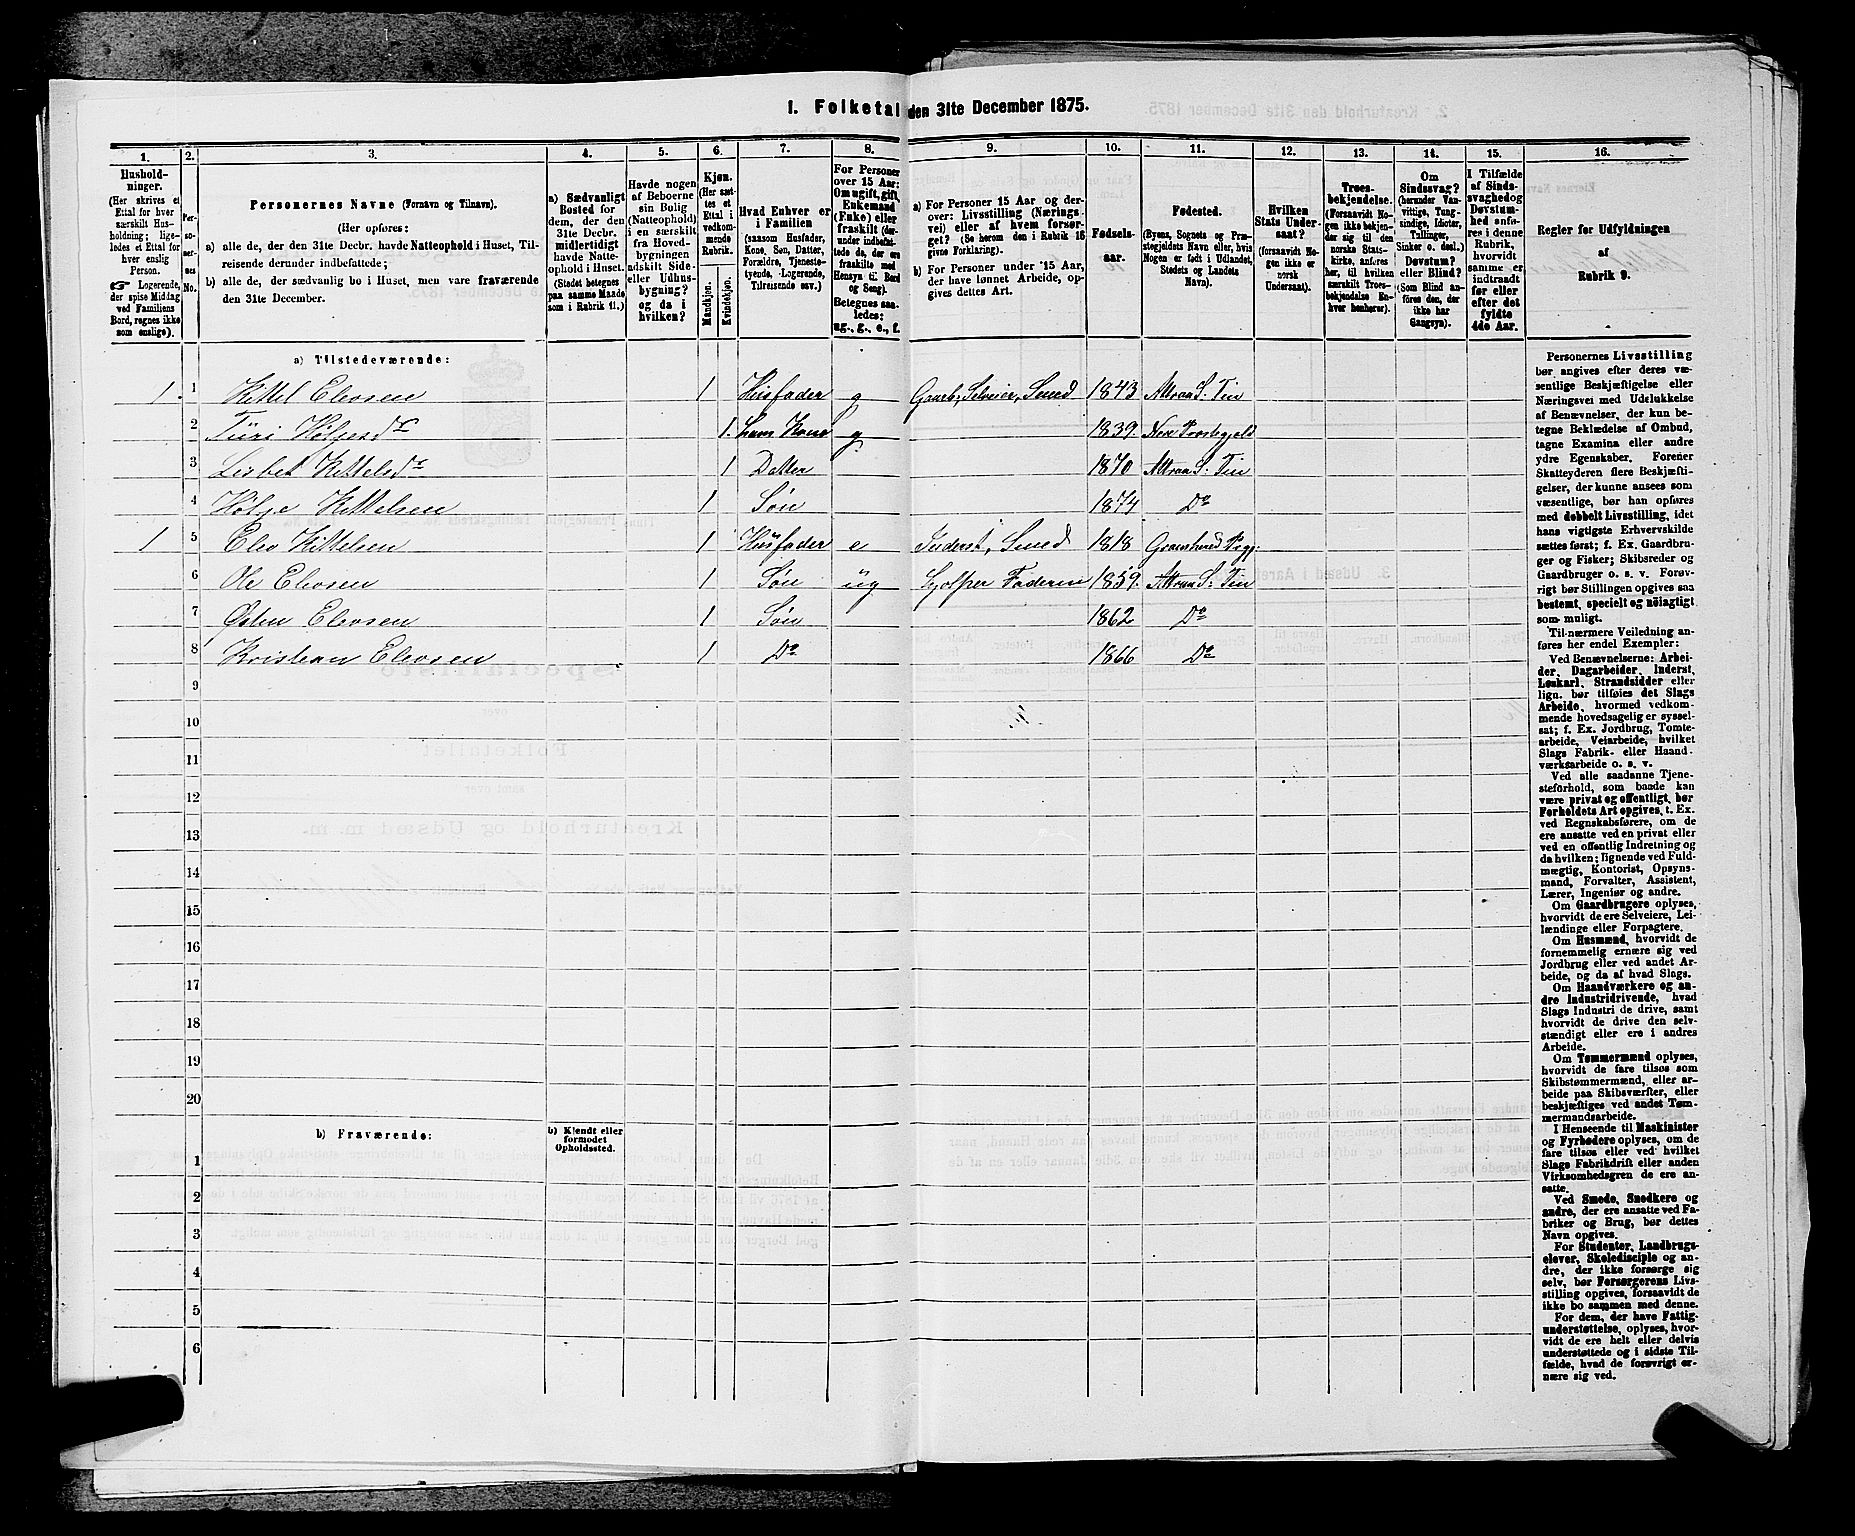 1. Folketal den 31te December 1875.
1. 2. 3. 4. 5. 6. 7. 8. 9. 10. 11. 12. 13. 14. 15. 16.
Husholdninger.
(Her skrives et
Ettal for hver
særskilt Husholdning;
ligeledes et Ettal for
hver enslig
Person.
Logerende,
der spise Middag
ved Familiens
Bord, regnes ikke
som enslige).
Personernes No.
Personernes Navne (Fornavn og Tilnavn).
(Her opføres:
a) alle de, der den 31te Decbr. havde Natteophold i Huset, Tilreisende derunder indbefattede;
b) alle de, der sædvanlig bo i Huset, men vare fraværende
den 31te December.
a) Sædvanligt
Bosted for
dem, der den
31te Decbr.
midlertidigt
havde Natteophold
i Huset.
(Stedet betegnes
paa samme Maade
som i Rubrik 11.)
Havde nogen
af Beboerne
sin Bolig
(Natteophold)
i en særskilt
fra Hovedbygningen
adskilt Side-
eller Udhusbygning?
og da i
hvilken?
Kjøn.
(Her sættes
et
Ettal i
vedkommende
Rubrik.
Mandkjøn.
Kvindekjøn.
Hvad Enhver er
i Familien
(saasom Husfader,
Kone, Søn, Datter,
Forældre, Tjenestetyende,
Logerende,
Tilreisende osv.)
For Personer
over 15 Aar:
Om ugift, gift,
Enkemand
(Enke) eller
fraskilt (derunder
indbefattede
de, der ere
fraskilte med
Hensyn til Bord
og Seng).
Betegnes saaledes:
ug., g., e., f.
a) For Personer 15 Aar og derover:
Livsstilling (Næringsvei)
eller af hvem forsørget?
(Se herom den i Rubrik 16
givne Forklaring).
b) For Personer under 15 Aar,
der have lønnet Arbeide, opgives
dettes Art.
Fødselsaar.
Fødested.
(Byens, Sognets og Præstegjeldets
Navn eller, hvis
Nogen er født i Udlandet,
Stedets og Landets
Navn).
Hvilken
Stats Undersaat?
(forsaavidt Nogen
ikke er
norsk
Undersaat).
Troesbekjendelse.
(Forsaavidt Nogen
ikke bekjender
sig til den
norske Statskirke,
anføres
her, til hvilken
særskilt Troesbekjendelse
Enhver
henhører).
Om
Sindssvag?
(herunder Vanvittige,
Tungsindige,
Idioter,
Tullinger,
Sinker o. desl.)
Døvstum?
eller Blind?
(Som Blind anføres
den, der
ikke har
Gangsyn).
I Tilfælde
af Sindssvaghed
og
Døvstumhed
anføres
i denne
Rubrik,
hvorvidt
samme er
indtraadt
før eller
efter det
fyldte
4de Aar.
Regler for Udfyldningen
af
Rubrik 9.
a) Tilstedeværende:
1. 1 Kittel Elevsen 1 Husfader g Gaarb., Selveier, Smed 1843 Attraa S: Tin
2 Turi Høljesd 1. hans Kone g 1839. Nore Præstegjeld
3 Lisbet Kittelsd 1 Datter 1870 Attraa S: Tin
4 Hølje Kittelsen 1 Søn 1874 Do
1 5 Elev Kittelsen 1 Husfader e Inderst, Smed 1818 Gransherred Prgj:
6 Ole Elevsen 1 Søn ug Hjælper Faderen 1859. Attraa S: Tin
7 Østen Elevsen 1 Søn 1862 Do
8 Kristian Elevsen 1 Do 1866 Do
9
10
11
12
13
14
15
16
17
18
19
20
b) Fraværende: b) Kjendt eller
formodet
Opholdssted.
1
2
3
4
5
6
Personernes Livsstilling
bør angives efter deres væsentlige
Beskjæftigelse eller
Næringsvei med Udelukkelse
af Benævnelser, der kun betegne
Beklædelse af Ombud,
tagne Examina eller andre
ydre Egenskaber. Forener
Skatteyderen flere Beskjæftigelser,
der kunne ansees som
væsentlige, bør han opføres
med dobbelt Livsstilling, idet
hans vigtigste Erhvervskilde
sættes først; f. Ex. Gaardbruger
og Fisker; Skibsreder og
Gaardbruger o. s. v. Forøvrigt
bør Stillingen opgives saa
bestemt, specielt og nøiagtigt
som muligt.
Til nærmere Veiledning anføres
her endel Exempler:
Ved Benævnelserne: Arbeider,
Dagarbeider, Inderst,
Løskarl, Strandsidder eller
lign. bør tilføies det Slags
Arbeide, hvormed vedkommende
hovedsagelig er sysselsat;
f. Ex. Jordbrug, Tomtearbeide,
Veiarbeide, hvilket
Slags Fabrik- eller Haandværksarbeide
o. s. v.
Ved alle saadanne Tjenesteforhold,
som baade kan
være privat og offentligt, bør
Forholdets Art opgives, t. Ex.
ved Regnskabsførere, om de
ere ansatte ved en privat eller
ved en offentlig Indretning og
da hvilken; lignende ved Fuldmægtig,
Kontorist, Opsynsmand,
Forvalter, Assistent,
Lærer, Ingeniør og andre.
Om Gaardbrugere oplyses,
hvorvidt de ere Selveiere, Leilændinge
eller Forpagtere.
Om Husmænd, hvorvidt de
fornemmelig ernære sig ved
Jordbrug eller ved andet Arbeide,
og da af hvad Slags.
Om Haandværkere og andre
Industridrivende, hvad
Slags Industri de drive, samt
hvorvidt de drive den selvstændigt
eller ere i andres
Arbeide.
Om Tømmermænd oplyses,
hvorvidt de fare tilsøs som
Skibstømmermænd, eller arbeide
paa Skibsværfter, eller
beskjæftiges ved andet Tømmermandsarbeide.
I Henseende til Maskinister
og Fyrbødere oplyses, om de
fare tilsøs eller ved hvilket
Slags Fabrikdrift eller anden
Virksomhedsgren de ere ansatte.
Ved Smede, Snedkere og
andre, der ere ansatte ved Fabriker
og Brug, bør dettes
Navn opgives.
For Studenter, Landbrugselever,
Skoledisciple og andre,
der ikke forsørge sig
selv, bør Forsørgerens Livsstilling
opgives, forsaavidt de
ikke bo sammen med denne.
For dem, der have Fattigunderstøttelse,
oplyses, hvorvidt
de ere helt eller delvis
understøttede og i sidste Tilfælde,
hvad de forøvrigt ernære
sig ved.